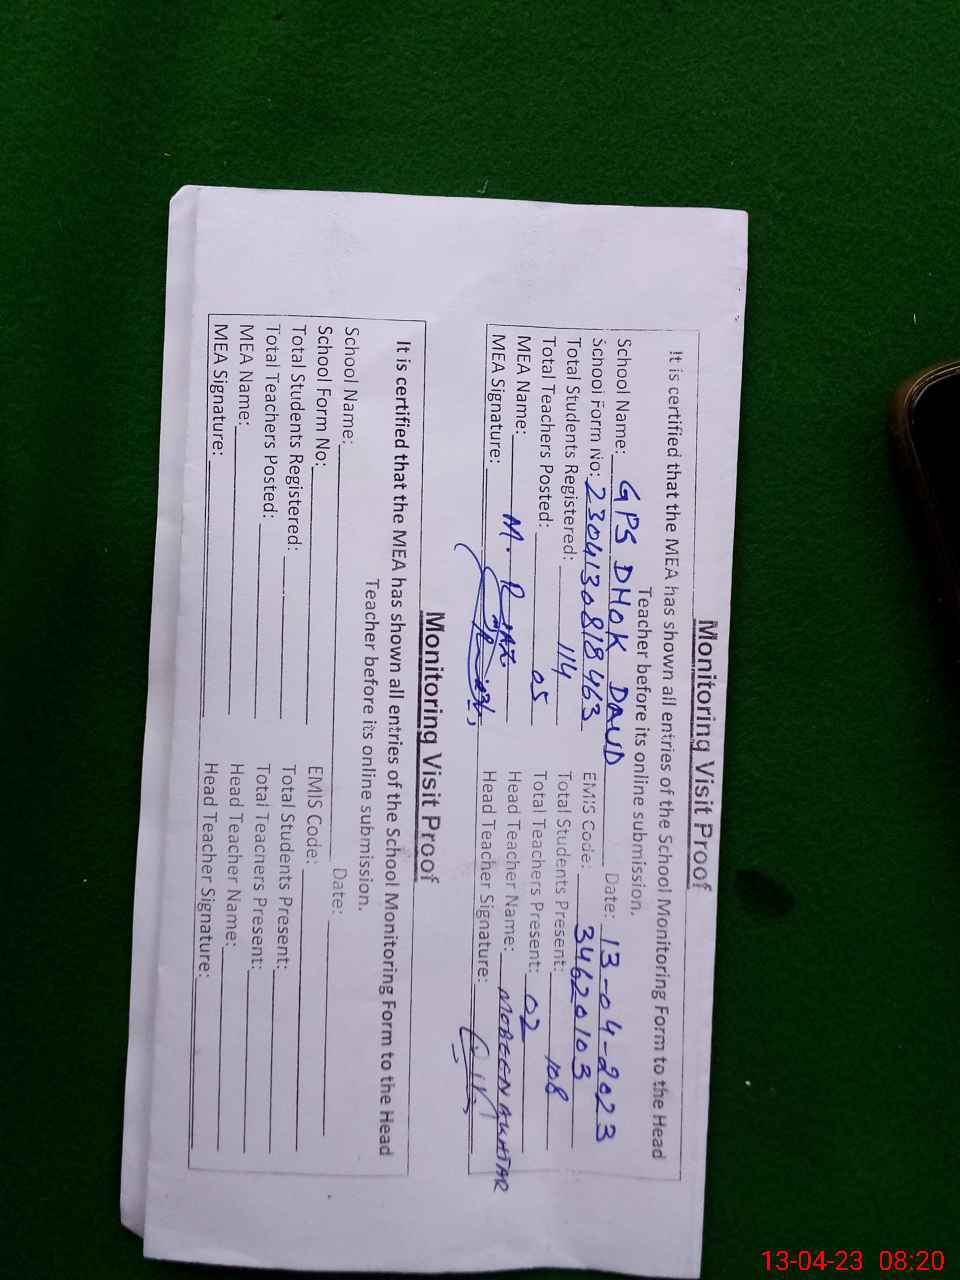 Monitoring Visit Proof
It is certified that the MEA has shown all entries of the School Monitoring Form to the Head
Teacher before its online submission.
School Name: GPS DHOK DAUD Date: 13-04-2023
School Form No: 2304130818463 EMIS Code: 34620103
Total Students Registered: 114 Total Students Present: 108
Total Teachers Posted: 05 Total Teachers Present: 02
MEA Name: M. RIAZ Head Teacher Name: MOBEEN AKHTAR
MEA Signature: Head Teacher Signature:
Monitoring Visit Proof
It is certified that the MEA has shown all entries of the School Monitoring Form to the Head
Teacher before its online submission.
School Name: Date:
School Form No: EMIS Code:
Total Students Registered: Total Students Present:
Total Teachers Posted: Total Teachers Present:
MEA Name: Head Teacher Name:
MEA Signature: Head Teacher Signature:
13-04-23 08:20